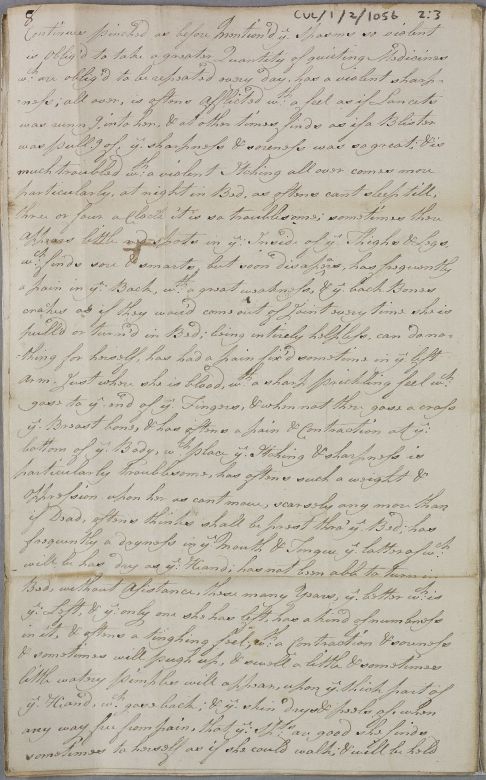 8
CUL/1/2/1056 2:3
Continues pinched as before mention'd yͤ. Spasms so violent
is oblig'd to take a greater Quantity of quieting Medicines
wᶜʰ are oblig'd to be repeated every day, has a violent sharp-
ness, all over, is oftens afflicted wᵗʰ a feel as if Lancets
was runn'g into her, & at other times finds as if a Blister
was pull'd of, yͤ sharpness & soreness was so great: & is
much troubled wᵗʰ a violent Itching all over comes more
particularly, at night in Bed, as oftens cant sleep till,
three or four a Clock it is so troublesome; sometimes there
appears little red spots in yͤ. Inside of yͤ Thighs & Legs,
wᶜʰ finds sore & smarts, but soon disapears, has frequently
a pain in yͤ. Back, wᵗʰ a great weakness, & yͤ back Bones
crakes as if they would come out of Joint every time she is
pull'd or turn'd in Bed; being intirely helpless, can do no-
thing for herself, has had a pain fix'd sometime in yͤ left
arm. Just where she is blood, wᵗʰ a sharp prickling feel wᶜʰ
gose to yͤ end of yͤ Fingers, & when not there gose a cross
yͤ Breast bone, & has oftens a pain & Contraction at yͤ.
bottom of yͤ Body, wᶜʰ place yͤ Itching & sharpness is
particularly troublesome, has oftens such a weight &
oppression upon her as cant move, scarsely any more than
if Dead, oftens thinks shall be prest thro' yͤ Bed; has
frequently a dryness in yͤ Mouth & Tongue yͤ latter of wᶜʰ
will be has day as yͤ Hand; has not been able to turn in
Bed, without Asistance, these many Years, yͤ better wᶜʰ is
yͤ Left, & yͤ only one she has left, has a kind of numbness
in it, & oftens a tinghing feel, wᵗʰ a Contraction & soreness
& sometimes will pough up, & swell a little & sometimes
little watry pimples will appear, upon yͤ thick part of
yͤ Hand, wᶜʰ gose back; & yͤ skin drys & peels of, when
any way free from pain, that yͤ are good she finds
sometimes to herself as if she could walk, & will be held